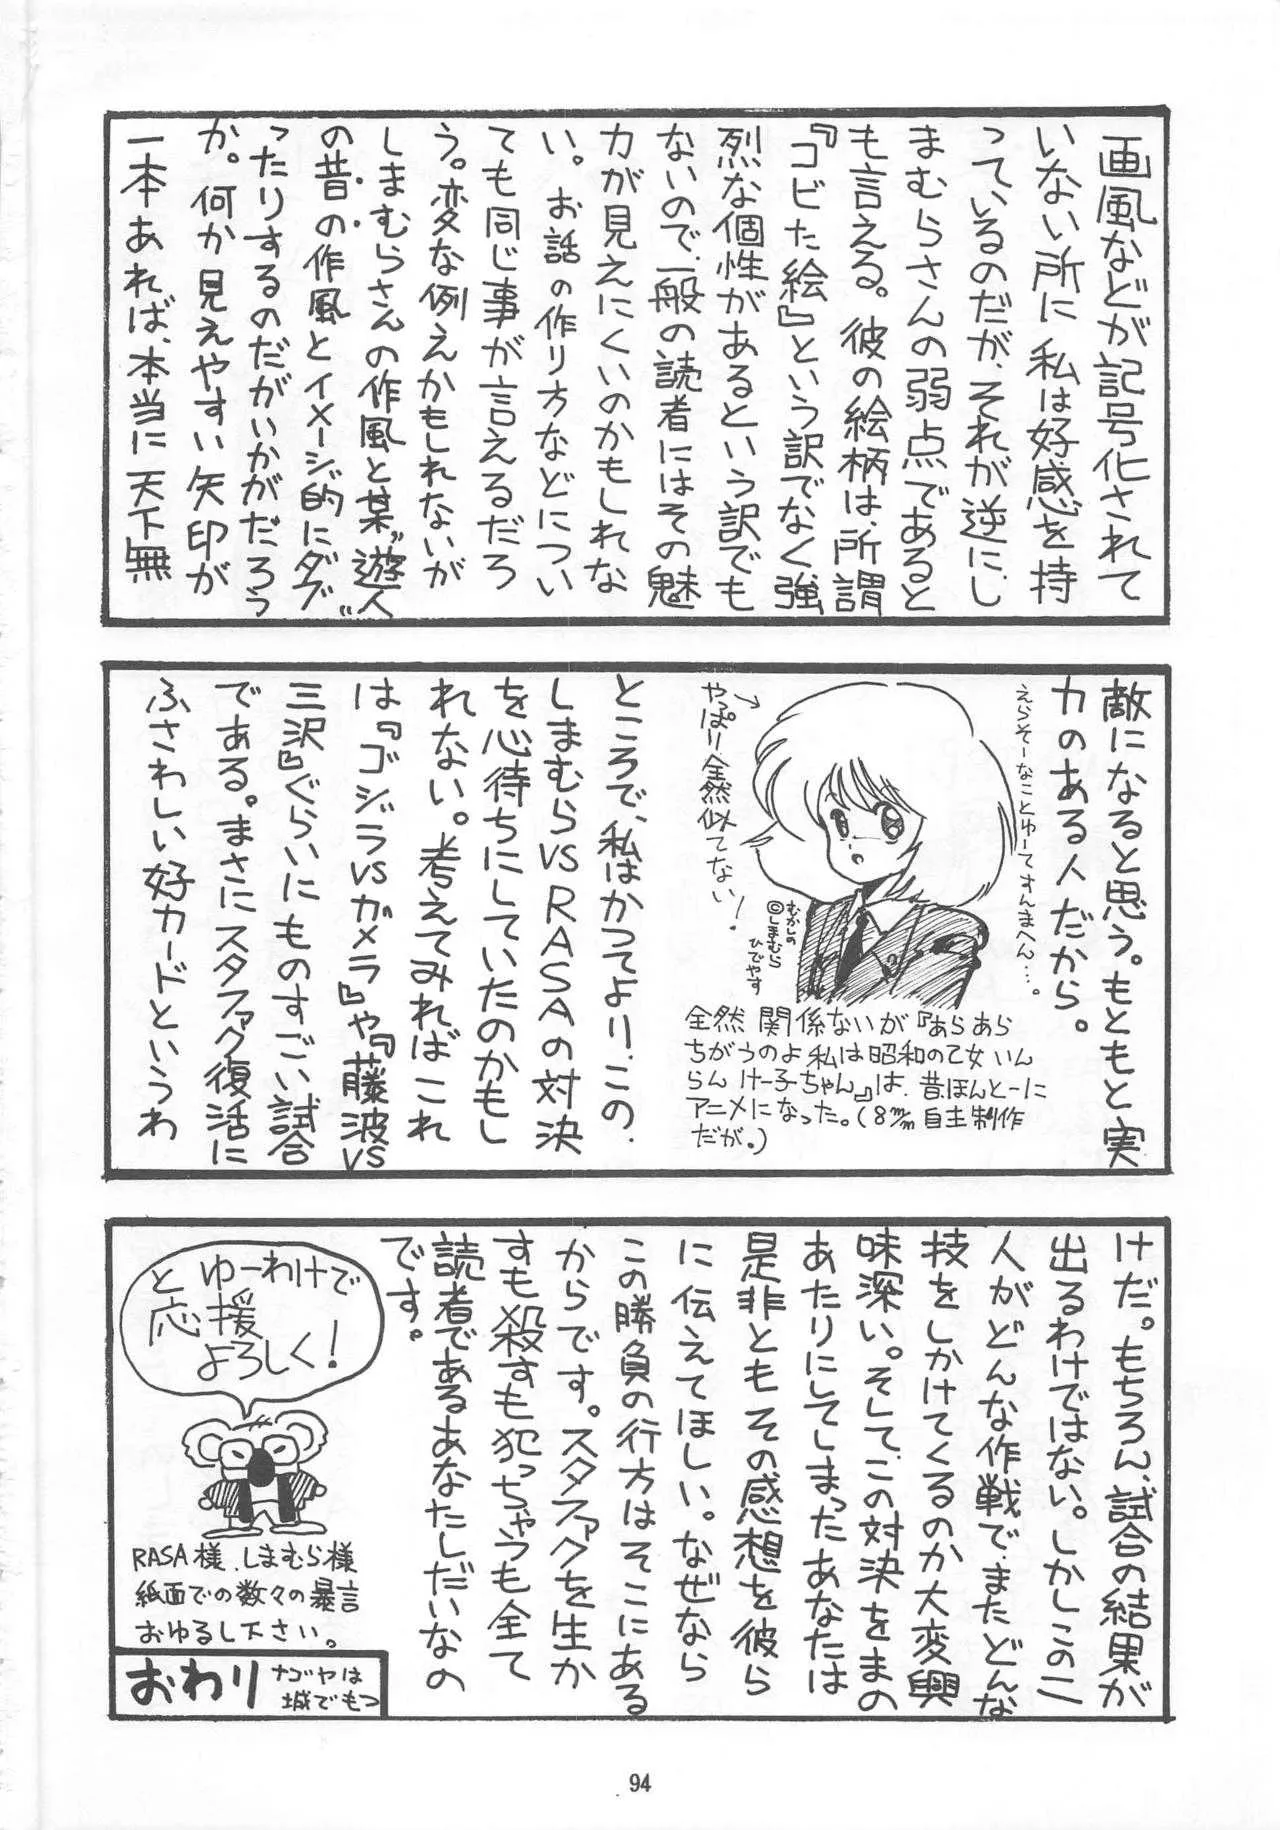 画風などが記号化されて
いない所に私は好感を持
っているのだが、それが逆にし
まむらさんの弱点であると
も言える。彼の絵柄は、所謂
『コビた絵』という訳でなく強
烈な個性があるという訳でも
ないので、一般の読者にはその魅
力が見えにくいのかもしれな
い。お話の作り方などについ
ても同じ事が言えるだろ
う。変な例えかもしれないが
しまむらさんの作風と某〝遊人
の昔の作風とイメージ的にダブ〟
ったりするのだがいかがだろう
か。何か見えやすい矢印が
一本あれば、本当に天下無
敵になると思う。もともと実
力のある人だから。
えらそーなことゆーてすんまへん…。
やっぱり全然似てない！
むかしの
©しまむら
ひでやす
全然関係ないが『あらあら
ちがうのよ私は昭和の乙女いん
らんけー子ちゃん』は、昔ほんとーに
アニメになった。(8m/m自主制作
だが。)
ところで、私はかつてより、この
しまむらVSRASAの対決
を心待ちにしていたのかもし
れない。考えてみればこれ
は『ゴジラVSガメラ』や『藤波VS
三沢』ぐらいにものすごい試合
である。まさにスタファク復活に
ふさわしい好カードというわ
けだ。もちろん、試合の結果が
出るわけではない。しかしこの二
人がどんな作戦で、またどんな
技をしかけてくるのか大変興
味深い。そして、この対決をまの
あたりにしてしまったあなたは
是非ともその感想を彼ら
に伝えてほしい。なぜなら
この勝負の行方はそこにある
からです。スタファクを生か
すも殺すも犯っちゃうも全て
読者であるあなたしだいなの
です。
とゆーわけで
応援
よろしく！
RASA様、しまむら様
紙面での数々の暴言
おゆるし下さい。
おわり
ナゴヤは
城でもつ
94